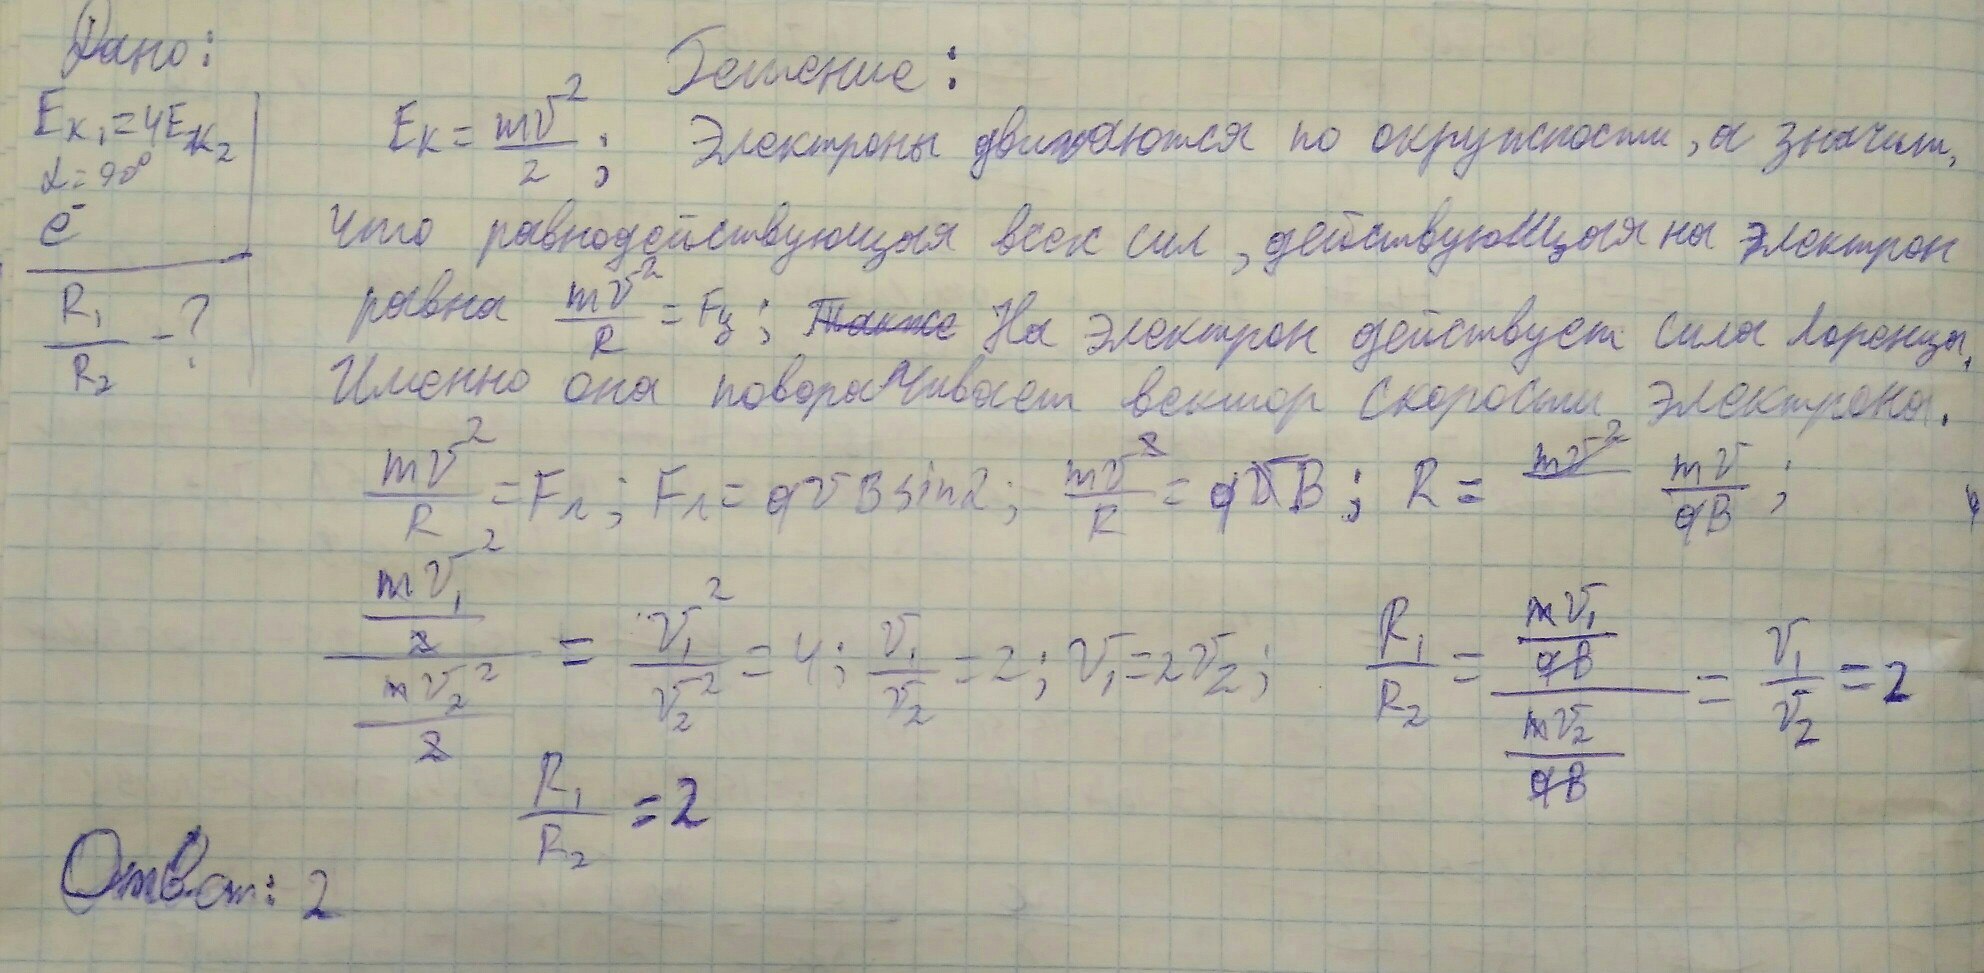 Дано:
Решение:
Eк₁=4Eк₂
α=90°
e⁻
R₁/R₂ - ?
Eк = mv²/2; Электроны движаются по окружности, а значит,
что равнодействующая всех сил, действующая на электрон
равна mv²/R = Fц; Также На электрон действует сила Лоренца.
Именно она поворачивает вектор скорости электрона.
mv²/R = Fл; Fл = qvBsinα; mv²/R = qvB; R = mv² mv/qB;
(mv₁²/2)/(mv₂²/2) = v₁²/v₂² = 4; v₁/v₂ = 2; v₁=2v₂; R₁/R₂ = (mv₁/qB)/(mv₂/qB) = v₁/v₂ = 2
R₁/R₂ = 2
Ответ: 2